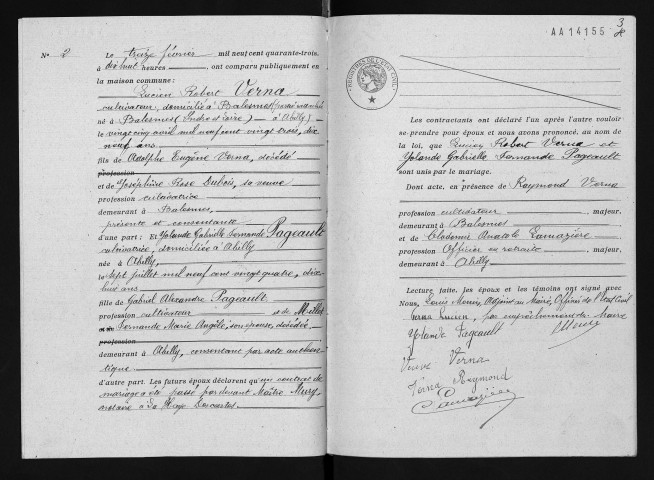 N° 2
Le treize février mil neuf cent quarante-trois,
à dix huit heures, ont comparu publiquement en
la maison commune:
Lucien Robert Verna
cultivateur, domicilié à Balesmes
né à Balesmes (Indre et Loire)
le vingt cinq avril mil neuf cent vingt trois, dix
neuf ans
fils de Adolphe Eugène Verna, décédé
profession
et de Joséphine Rose Dubois, sa veuve
profession cultivatrice
demeurant à Balesmes,
présente et consentante
d'une part: Et Yolande Gabrielle Fernande Pageault
cultivatrice, domiciliée à Abilly
née à Abilly,
le sept juillet mil neuf cent vingt quatre, dix-
huit ans
fille de Gabriel Alexandre Pageault
profession cultivateur et de Millet
Fernande Marie Angèle, son épouse, décédée,
profession
demeurant à Abilly, consentant par acte authen-
tique
d'autre part. Les futurs époux déclarent qu'un contrat de
mariage a été passé par devant Maître Mury,
notaire à La Haye Descartes
AA14155
3
REGISTRES DE L'ETAT CIVIL
Les contractants ont déclaré l'un après l'autre vouloir
se prendre pour époux et nous avons prononcé, au nom de
la loi, que Lucien Robert Verna et
Yolande Gabrielle Fernande Pageault
sont unis par le mariage.
Dont acte, en présence de Raymond Verna
profession cultivateur, majeur,
demeurant à Balesmes
et de Clodomir Anatole Lamazière
profession Officier en retraite, majeur,
demeurant à Abilly
Lecture faite, les époux et les témoins ont signé avec
Nous, Louis Meury, Adjoint au Maire, Officier de l'Etat Civil
par empêchement du Maire
Verna Lucien,
Yolande Pageault
Veuve Verna
Verna Raymond
Lamazière